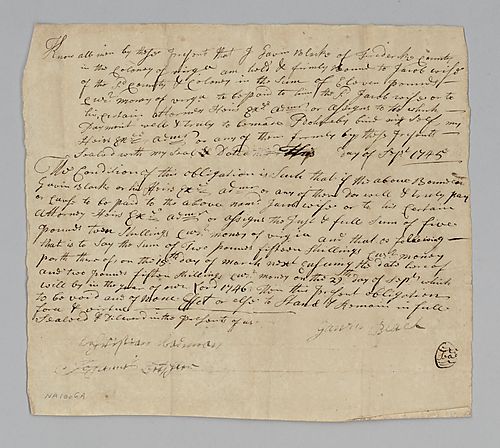 Know all men by these Present that I Gavin Black of Frederick County
in the Colony of Virga am hold & firmly bound to Jacob wise
of the sd County & Colony in the Sum of Eleven pounds
Curt money of virga to be paid to him the sd Jacob wise or to
his Certain attorney Heirs Exrs Admrs or assigns to the which
Payment well & truly to be made I hereby bind my Self my
Heirs Exrs Admrs or any of them firmly by these presents
Sealed with my Seal & Dated this day of Sepr 1745
The Condition of this obligation is Such that if the above Bounden
Gavin Black or his Heirs Exrs Admrs or any of them do well & truly pay
or Cause to be paid to the above namd Jacob wise or to his Certain
Attorney Heirs Exrs Admrs or assigns the Just & full Sum of five
pounds Ten Shillings Curt money of virga and that as following
that is to Say the Sum of Two pounds fifteen Shillings Curt money
part thereof on the day of march next Ensuing the date hereof
and two pounds fifteen Shillings Curt money on the 29th day of Sepr which
will be in the year of our Lord 1746 then this Present obligation
to be void and of none Effect or else to Stand & Remain in full
force & virtue
Sealed & Delivered in the Presents of us
Gavin Black
NA1006A